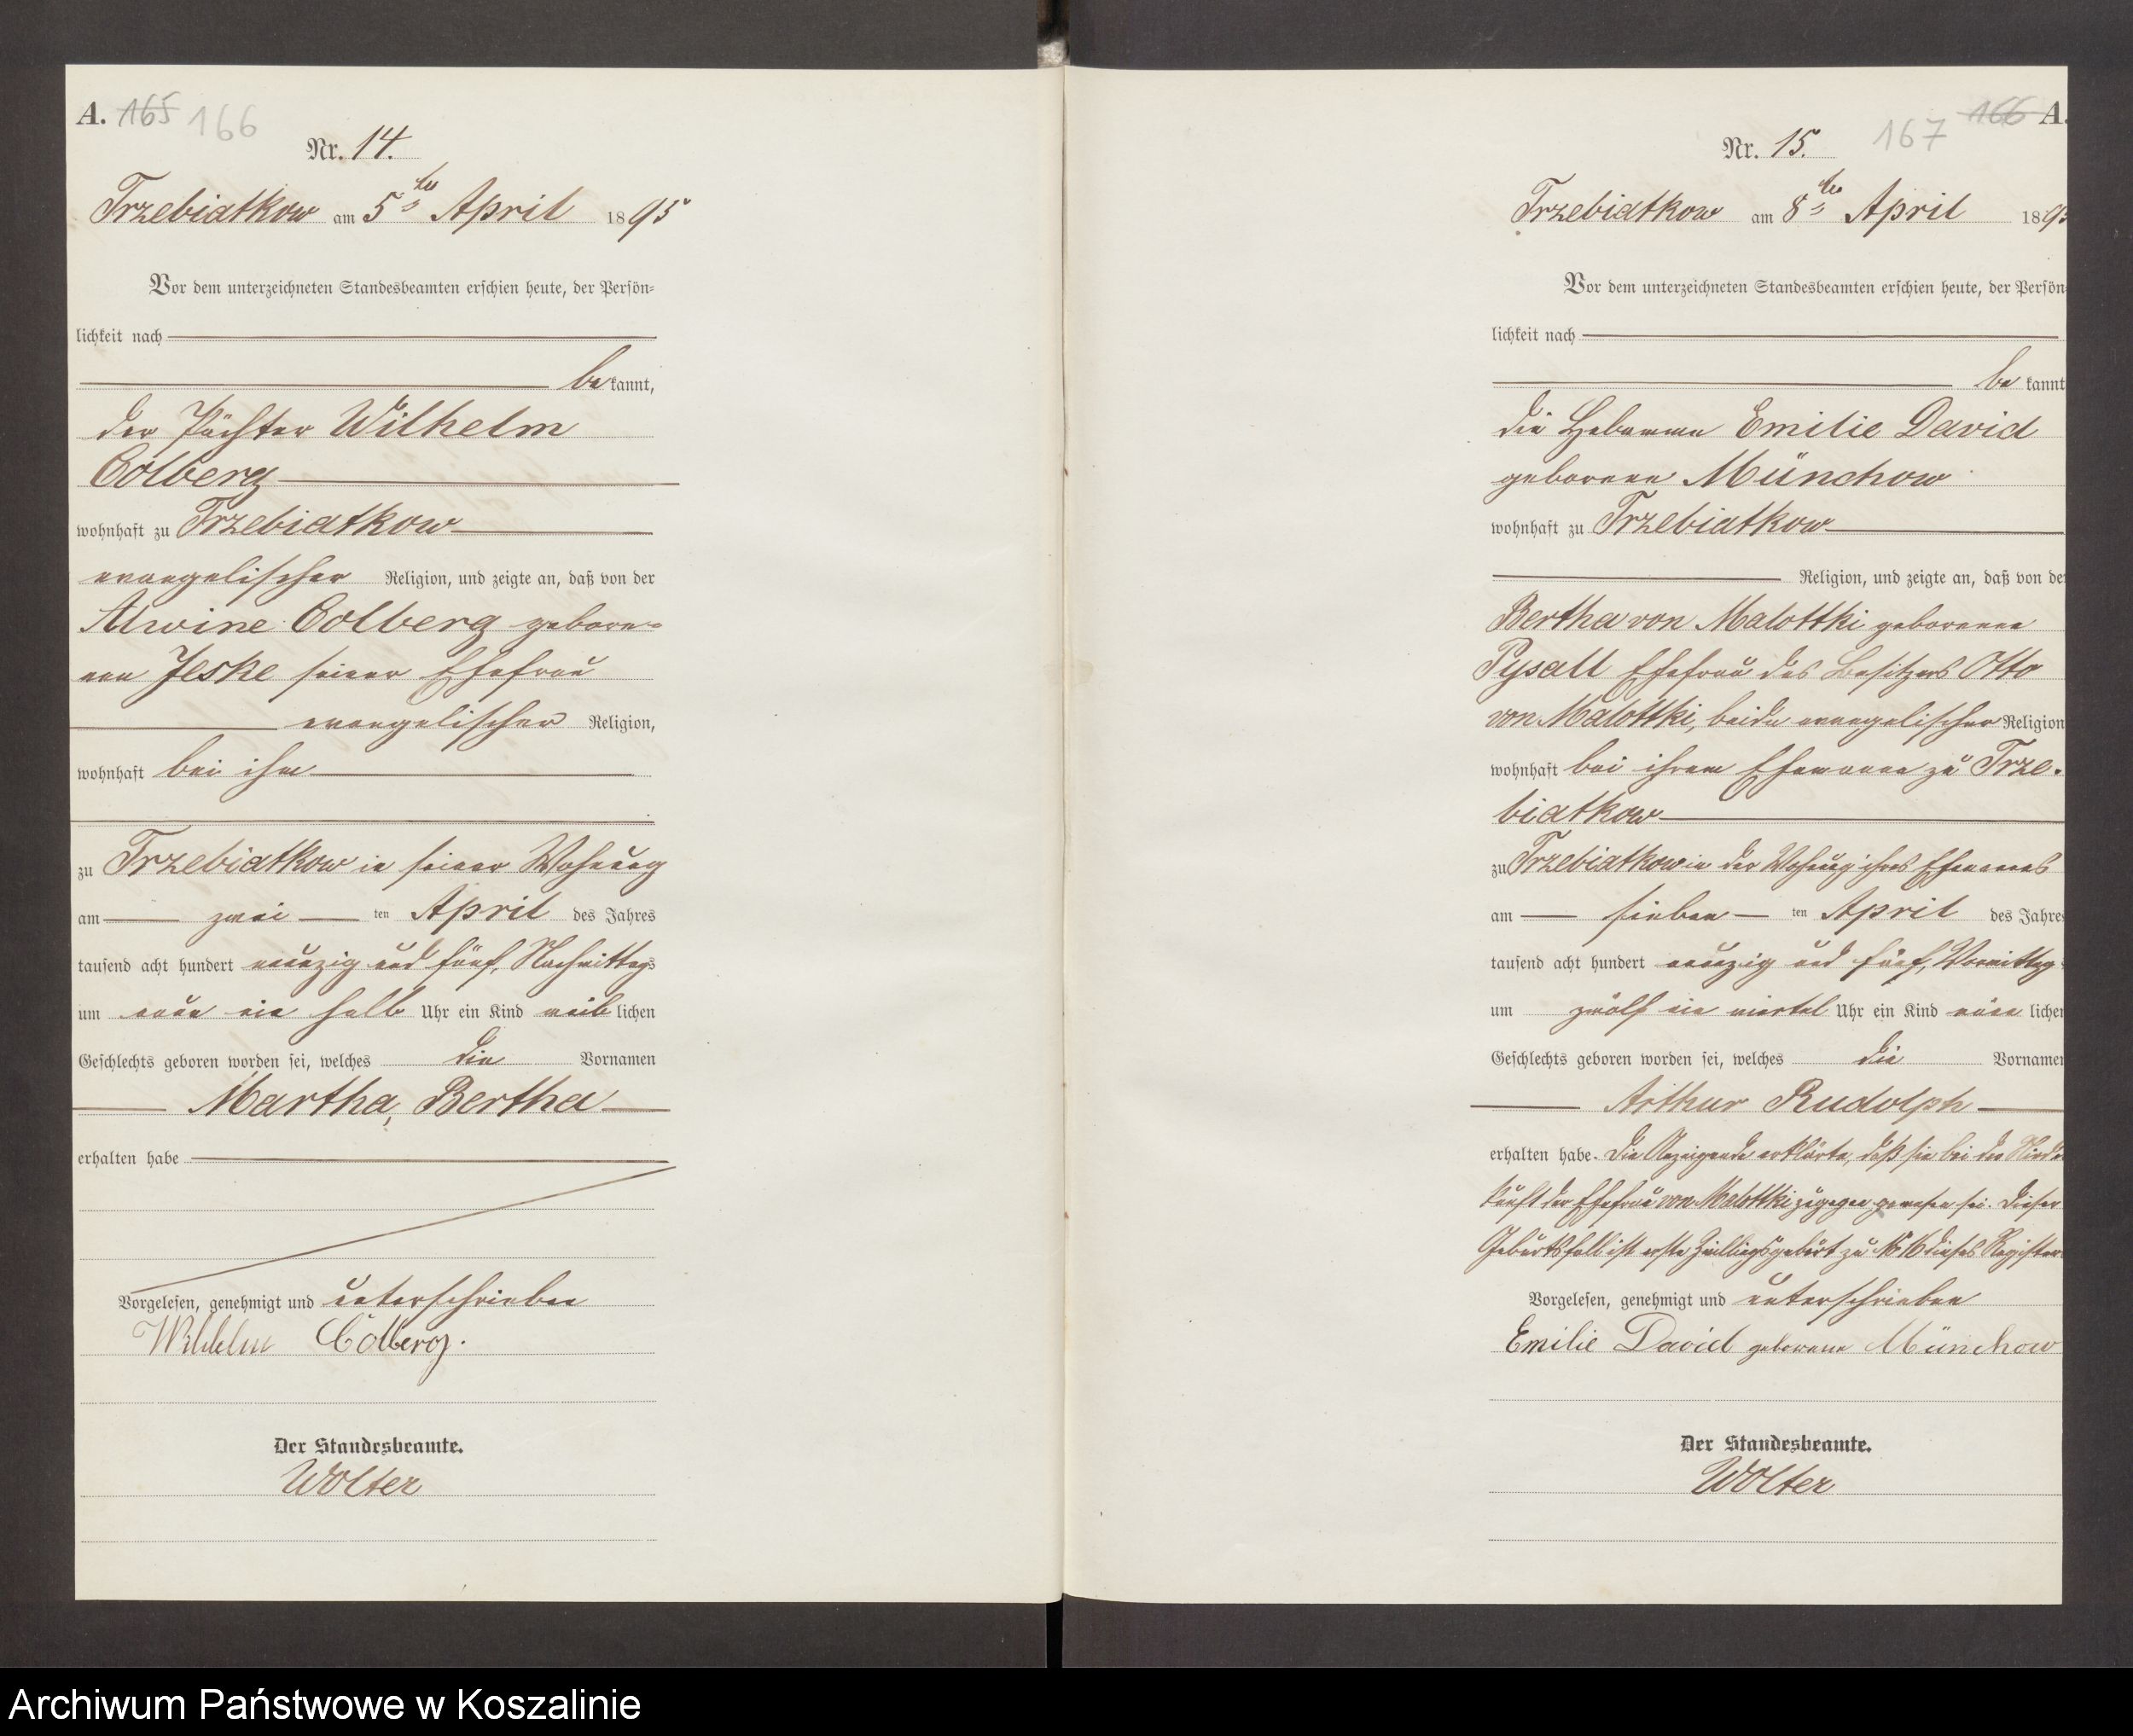 A. 165 166
Nr. 14.
Trzebiatkow am 5ten April 1895
Vor dem unterzeichneten Standesbeamten erschien heute, der Persön-
lichkeit nach
bekannt,
der Pächter Wilhelm
Colberg
wohnhaft zu Trzebiatkow
evangelischer Religion, und zeigte an, daß von der
Alwine Colberg gebore-
nen Jeske seiner Ehefrau
evangelischer Religion,
wohnhaft bei ihm
zu Trzebiatkow in seiner Wohnung
am zwei ten April des Jahres
tausend acht hundert neunzig und fünf, Nachmittags
um neun ein halb Uhr ein Kind weiblichen
Geschlechts geboren worden sei, welches die Vornamen
Martha, Bertha
erhalten habe
Vorgelesen, genehmigt und unterschrieben
Wilhelm Colberg.
Der Standesbeamte.
Wolter
166 A.
167
Nr. 15.
Trzebiatkow am 8ten April 1895
Vor dem unterzeichneten Standesbeamten erschien heute, der Persön
lichkeit nach
bekannt
die Hebamme Emilie David
geborene Münchow
wohnhaft zu Trzebiatkow
Religion, und zeigte an, daß von der
Bertha von Malottki geborenen
Pysall Ehefrau des Besitzers Otto
von Malottki, beide evangelischer Religion
wohnhaft bei ihrem Ehemanne zu Trze-
biatkow
zu Trzebiatkow in der Wohnung ihres Ehemannes
am sieben ten April des Jahres
tausend acht hundert neunzig und fünf, Vormittags
um zwölf ein viertel Uhr ein Kind männlichen
Geschlechts geboren worden sei, welches die Vornamen
Arthur Rudolph
erhalten habe. Die Anzeigende erklärte, daß sie bei der Nieder
kunft der Ehefrau von Malottki zugegen gewesen sei. Dieser
Geburtsfall ist erste Zwillingsgeburt zu № 16 dieses Registers
Vorgelesen, genehmigt und unterschrieben
Emilie David geborene Münchow
Der Standesbeamte.
Wolter
Archiwum Państwowe w Koszalinie